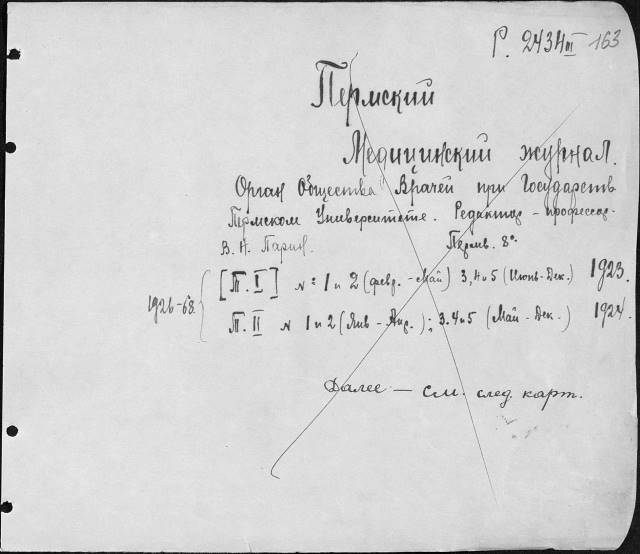 P. 2434 III 163
Пермский
Медицинский журнал.
Орган Общества Врачей при Государств
Пермском Университете. Редактор - профессор
В. Н. Парин. Пермь. 8°.
1926-68. [Т. I] № 1 и 2 (февр. - Май) 3, 4 и 5 (Июнь - Дек.) 1923.
Т. II № 1 и 2 (Янв - Апр.); 3. 4 и 5 (Май - Дек.) 1924.
Далее — см. след. карт.